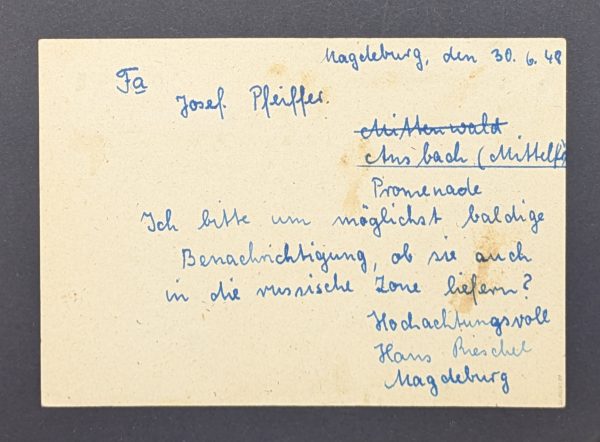 Magdeburg, den 30.6.48
Fa
Josef Pfeiffer.
Mittenwald
Ansbach (Mittelf
Promenade
Ich bitte um möglichst baldige
Benachrichtigung, ob sie auch
in die russische Zone liefern?
Hochachtungsvoll
Hans
Magdeburg